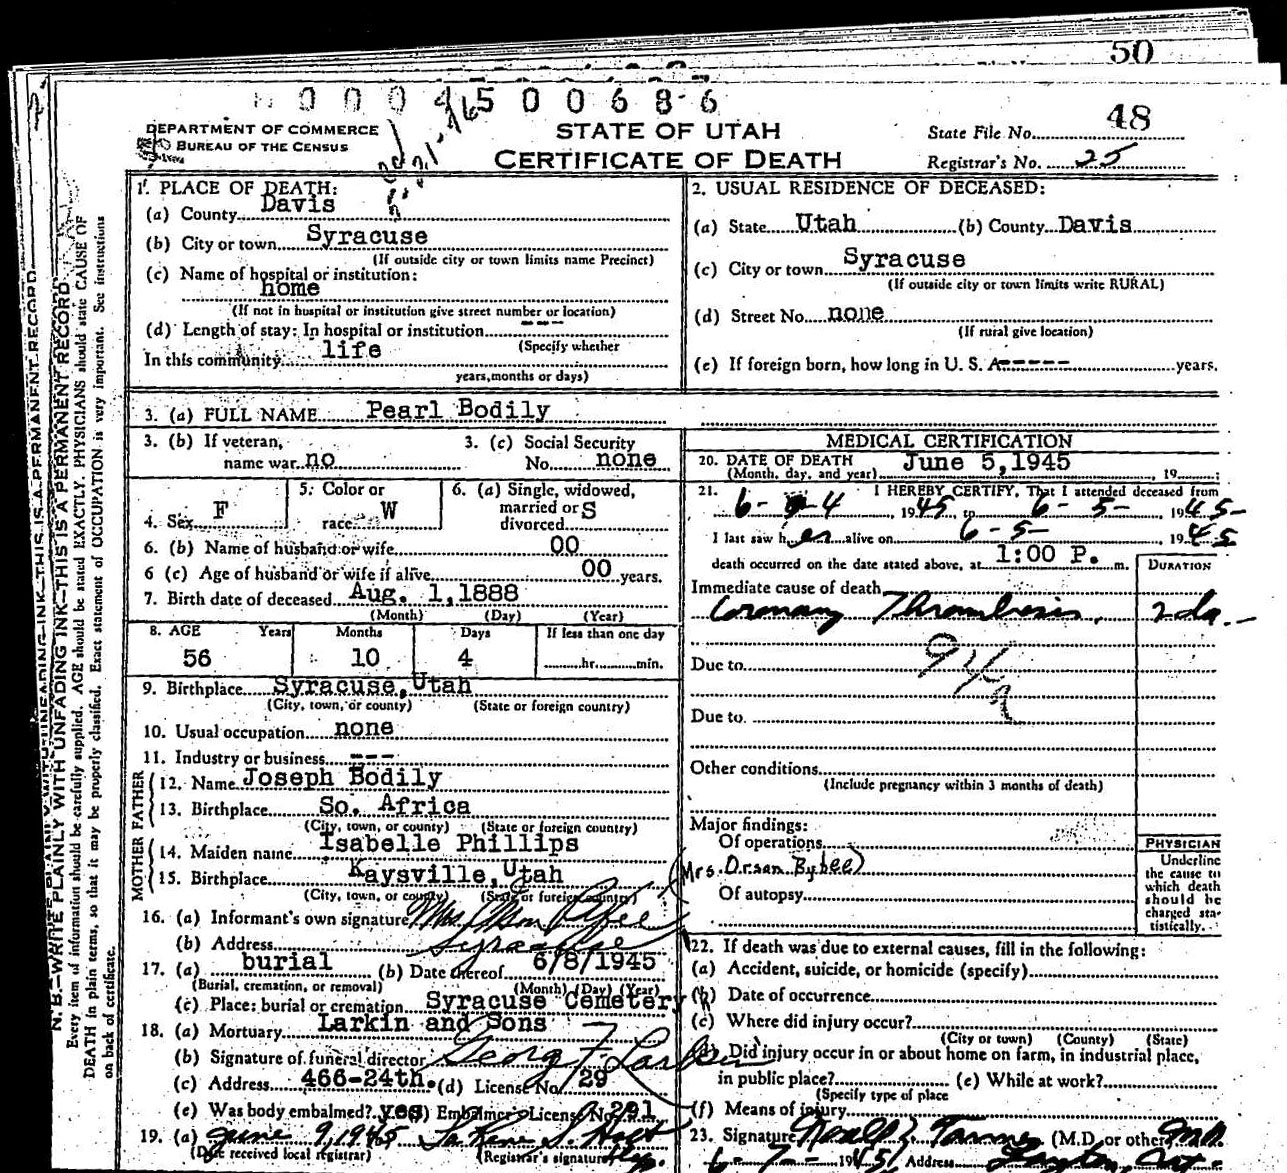 50
0004500686
DEPARTMENT OF COMMERCE
BUREAU OF THE CENSUS
STATE OF UTAH
CERTIFICATE OF DEATH
State File No. 48
Registrar's No. 25
1. PLACE OF DEATH:
(a) County Davis
(b) City or town Syracuse
(If outside city or town limits name Precinct)
(c) Name of hospital or institution:
home
(If not in hospital or institution give street number or location)
(d) Length of stay: In hospital or institution ---
(Specify whether
In this community life
years, months or days)
2. USUAL RESIDENCE OF DECEASED:
(a) State Utah (b) County Davis
(c) City or town Syracuse
(If outside city or town limits write RURAL)
(d) Street No. none
(If rural give location)
(e) If foreign born, how long in U. S. A. ----- years.
3. (a) FULL NAME Pearl Bodily
3. (b) If veteran, 3. (c) Social Security
name war no No. none
4. Sex F
5. Color or race W
6. (a) Single, widowed, married or divorced S
6. (b) Name of husband or wife 00
6 (c) Age of husband or wife if alive 00 years.
7. Birth date of deceased Aug. 1, 1888
(Month) (Day) (Year)
8. AGE Years Months Days If less than one day
56 10 4 hr. min.
9. Birthplace Syracuse, Utah
(City, town, or county) (State or foreign country)
10. Usual occupation none
11. Industry or business ---
FATHER
12. Name Joseph Bodily
13. Birthplace So. Africa
(City, town, or county) (State or foreign country)
MOTHER
14. Maiden name Isabelle Phillips
15. Birthplace Kaysville, Utah
(City, town, or county) (State or foreign country)
16. (a) Informant's own signature Mrs. Orson Bybee
(Mrs. Orson Bybee)
(b) Address Syracuse
17. (a) burial (b) Date thereof 6/8/1945
(Burial, cremation, or removal) (Month) (Day) (Year)
(c) Place: burial or cremation Syracuse Cemetery
18. (a) Mortuary Larkin and Sons
(b) Signature of funeral director George F Larkin
(c) Address 466-24th. (d) License No. 29
(e) Was body embalmed? yes (f) Embalmer's License No. 291
19. (a) June 9, 1945
(Date received local registrar) (Registrar's signature)
MEDICAL CERTIFICATION
20. DATE OF DEATH June 5, 1945
(Month, day, and year) , 19 ;
21. I HEREBY CERTIFY, That I attended deceased from
6-4, 1945, to 6-5-, 1945-
I last saw her alive on 6-5-, 1945
death occurred on the date stated above, at 1:00 P. m.
DURATION
Immediate cause of death
Coronary Thrombosis. 2 da.
Due to
Due to
Other conditions
(Include pregnancy within 3 months of death)
Major findings:
Of operations
Of autopsy
PHYSICIAN
Underline
the cause to
which death
should be
charged sta-
tistically.
22. If death was due to external causes, fill in the following:
(a) Accident, suicide, or homicide (specify)
(b) Date of occurrence
(c) Where did injury occur?
(City or town) (County) (State)
Did injury occur in or about home on farm, in industrial place,
in public place? (e) While at work?
(Specify type of place
(f) Means of injury
23. Signature Tanner (M.D. or other) M.D.
6-7-1945 Address Layton, Ut.
N. B.—WRITE PLAINLY WITH UNFADING INK—THIS IS A PERMANENT RECORD
Every item of information should be carefully supplied. AGE should be stated EXACTLY. PHYSICIANS should state CAUSE OF
DEATH in plain terms, so that it may be properly classified. Exact statement of OCCUPATION is very important. See instructions
on back of certificate.